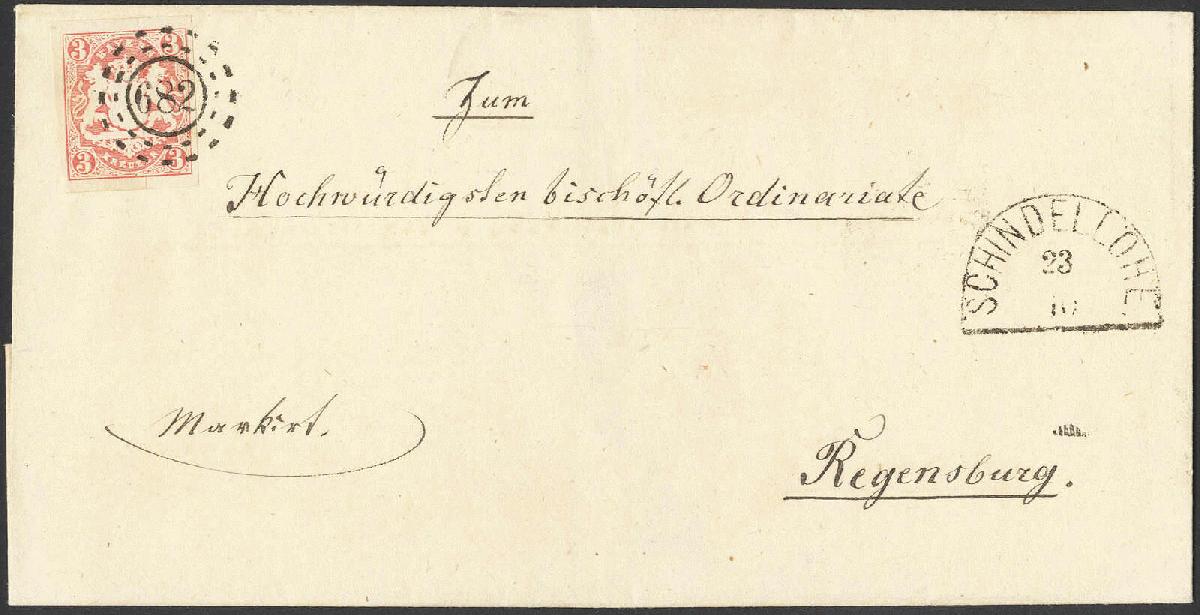 3 3
682
3 3
Zum
Hochwürdigsten bischöfl. Ordinariate
SCHINDELLOHE
23
10
Markirt.
Regensburg.